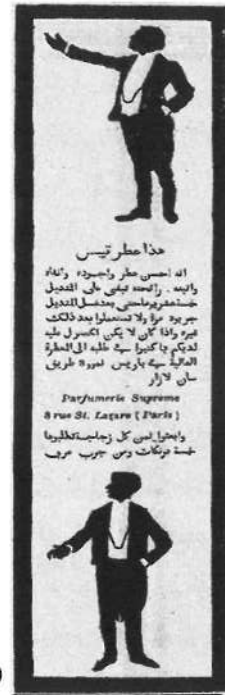 هذا عطر تيس
انه احسن عطر واجوده وانقاه
واثبته . رائحته تبقى على المنديل
خمسة عشر يوماً حتى بعد غسل المنديل
جربوه مرة ولا تستعملوا بعد ذلك
غيره واذا كان لا يمكن الحصول عليه
لديكم فاكتبوا في طلبه الى المعطرة
العالية في باريس نمرو 8 طريق
سان لازار
Parfumerie Supreme
8 rue St. Lazare ( Paris )
وابعثوا ثمن كل زجاجة تطلبوها
خمسة فرنكات ومن جرب عرف